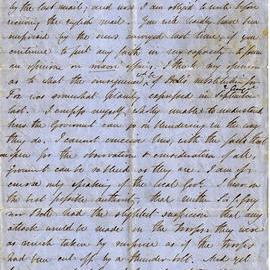 by the last mail; and now I am obliged to write before
receiving the English mail. You will hardly have been
surprised by the news conveyed last time, if you
continue to put any faith in my capacity to form
an opinion on maori affairs. I think my opinion
as to what the consequences of
Fox was somewhat plainly expressed in
last. I confess myself utterly unable to understand
how the Government can go on blundering in the way
they do. I cannot conceive how with the facts that
open for the observation & consideration of all
Government can be so blind as they are. I am for
once only speaking of the local Govt. I hear on
the best possible authority, that neither Sir G. Grey
nor Bell had the slightest suspicion that any
attack would be made on the Troops they were
as much taken by surprise as if the Troops
had been cut off by a thunder-bolt. And yet